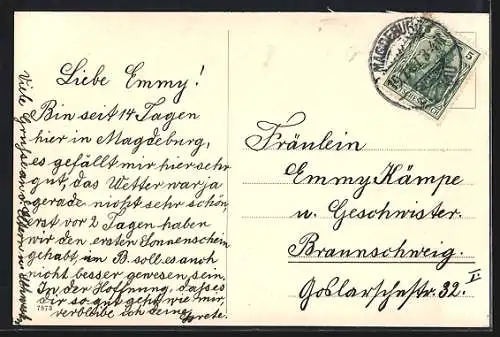 Liebe Emmy!
Bin seit 14 Tagen
hier in Magdeburg,
es gefällt mir hier sehr
gut, das Wetter war ja
gerade nicht sehr schön,
erst vor 2 Tagen haben
wir den ersten Sonnenschein
gehabt, im B. soll es auch
nicht besser gewesen sein.
In der Hoffnung, dass es
dir so gut geht wie mir,
verbleibe ich deine
Grete.
Viele Grüsse an d. Eltern u.
7873
Fräulein
Emmy Kämpe
u. Geschwister.
Braunschweig.
Goslarschestr. 32. I.
MAGDEBURG
5